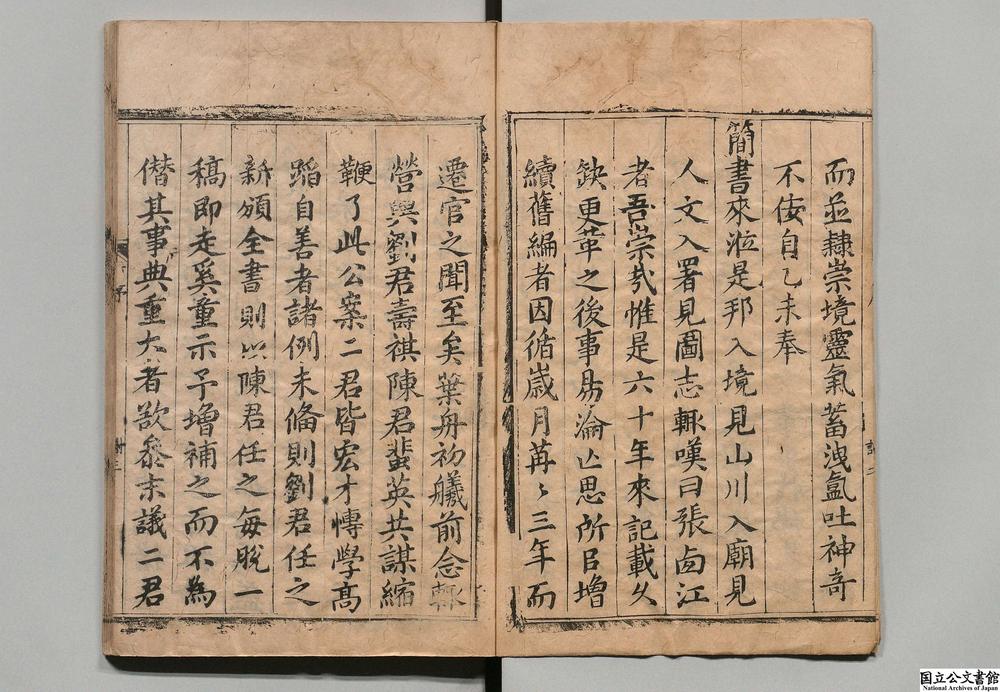 而並隷崇境靈氣蓄洩氤吐神奇
不佞自乙未奉
簡書來涖是邦入境見山川入廟見
人文入署見圖志輒嘆曰張卤江
者吾崇哉惟是六十年來記載久
缺更革之後事易淪亡思所㠯增
續舊編者因循歲月苒〻三年而
遷官之聞至矣葉舟初艤前念輒
營與劉君壽祺陳君蜚英共謀縮
鞭了此公案二君皆宏才慱學高
蹈自善者諸例未偹則劉君任之
新頒全書則㕥陳君任之每脫一
稿即走奚童示予增補之而不為
僭其事典重大者欲叅末議二君
国立公文書館
National Archives of Japan